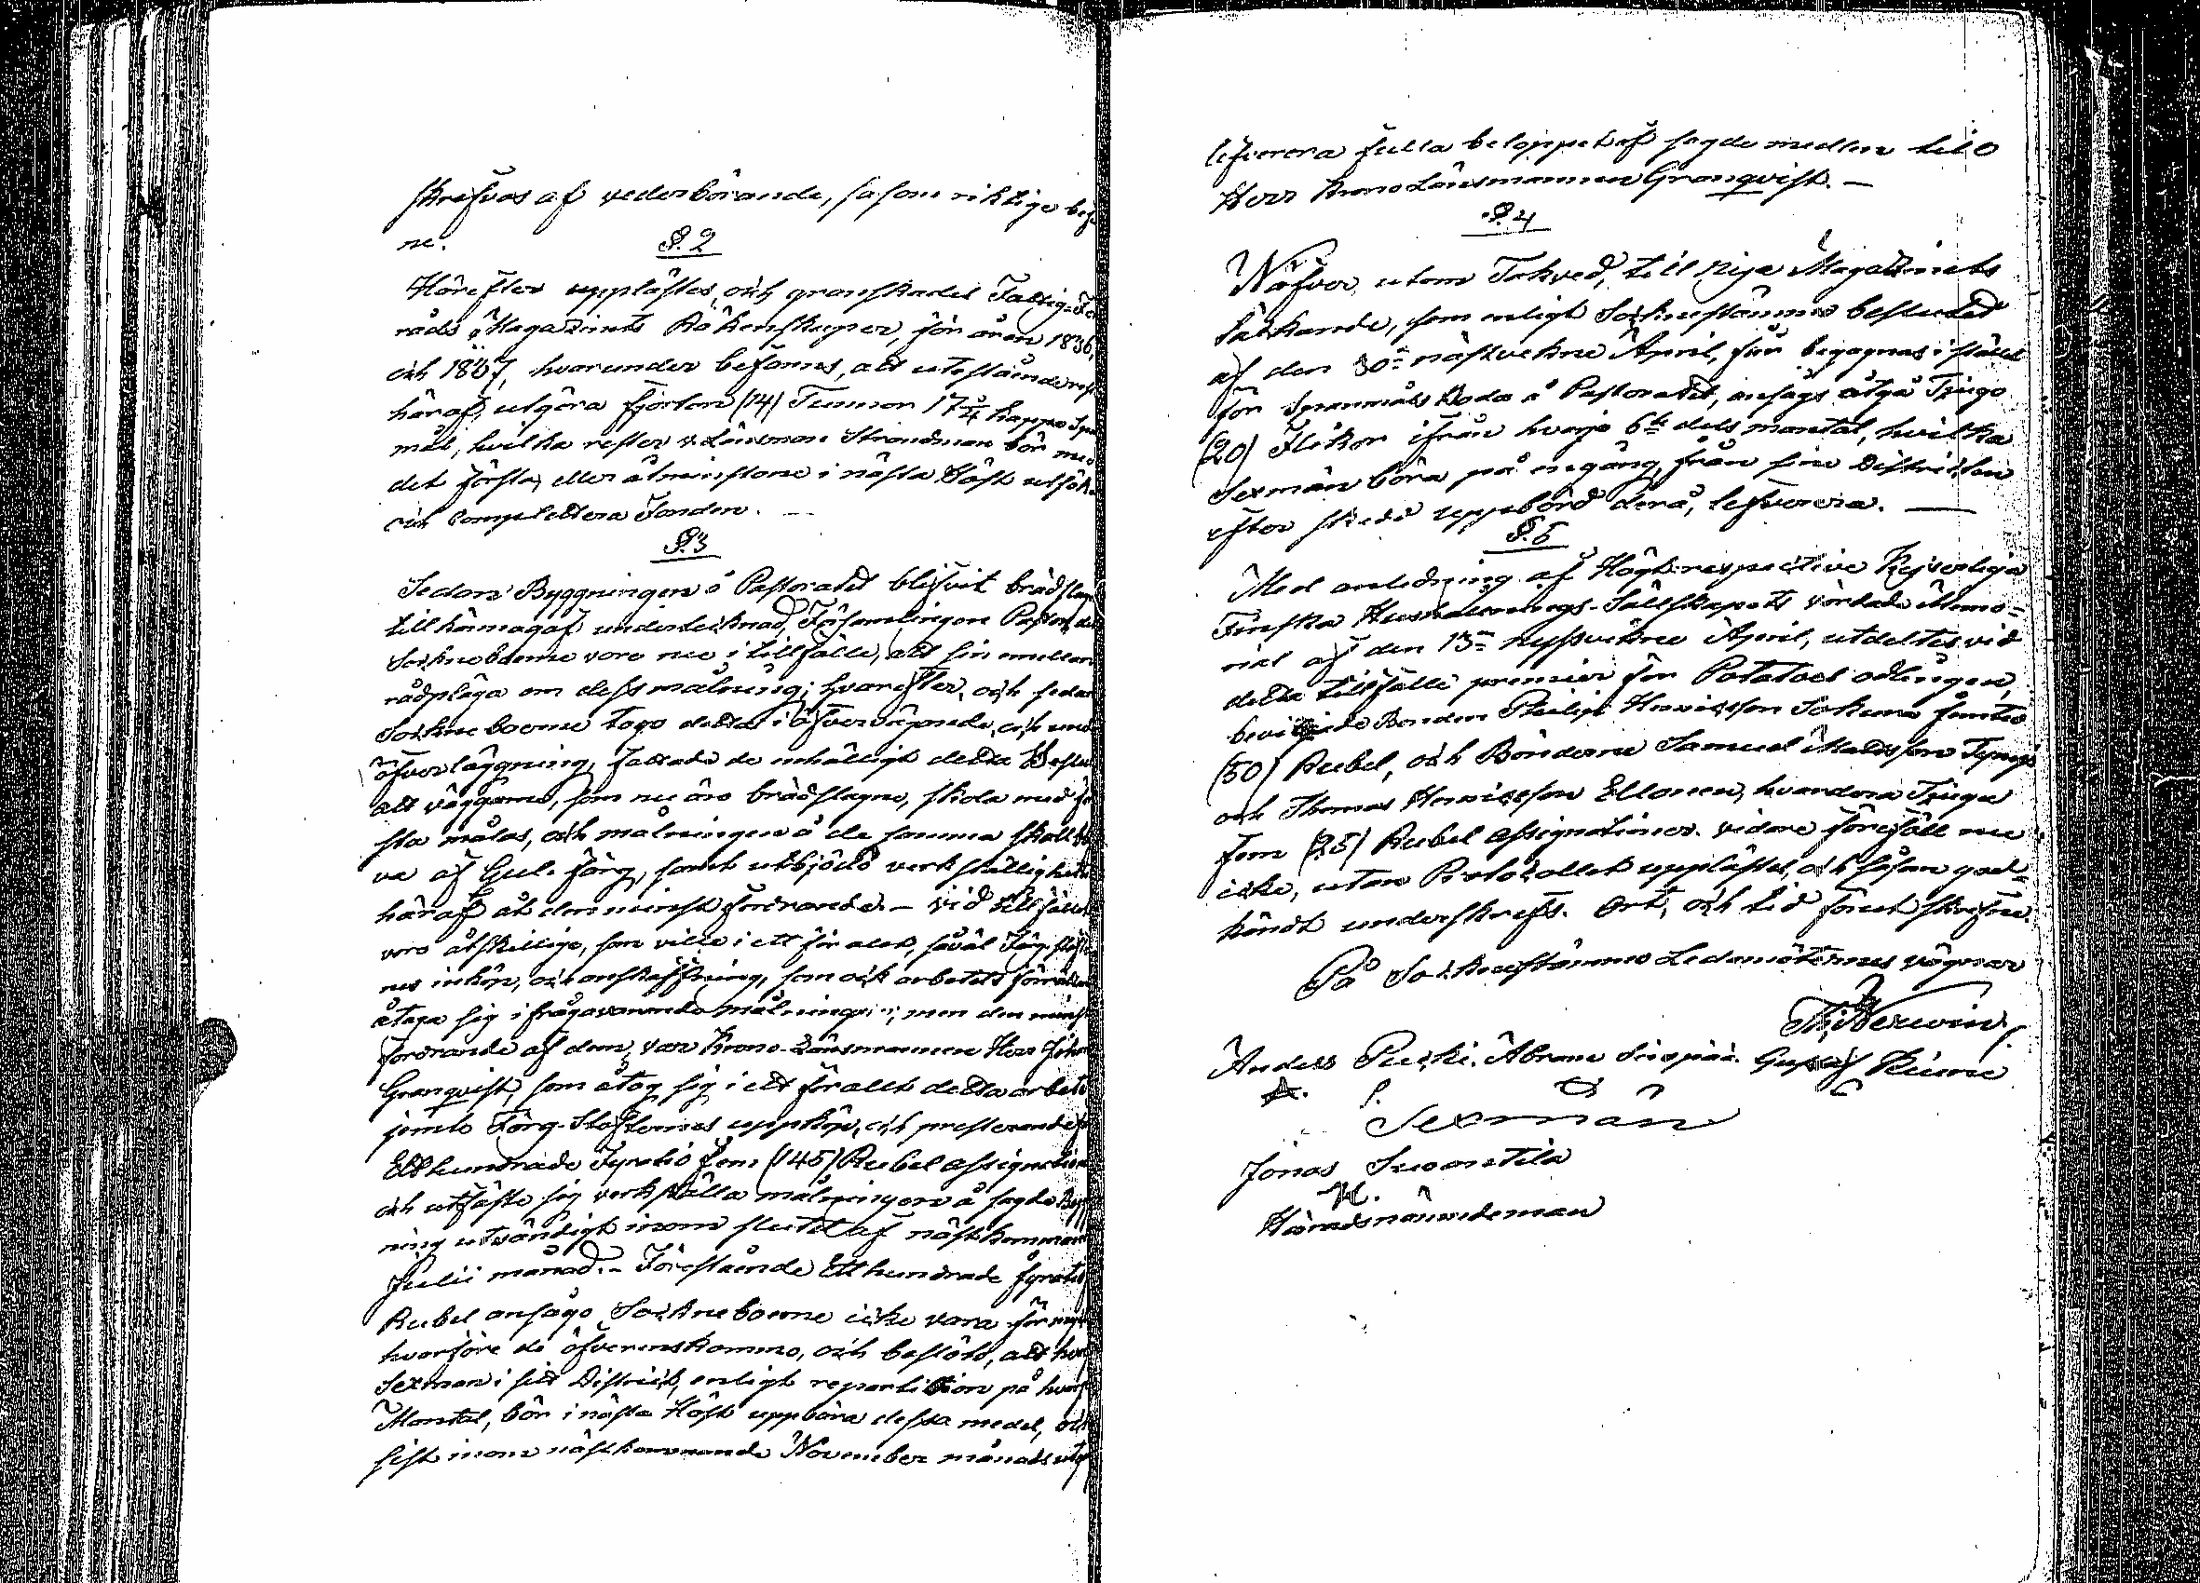 skrefvos af vederbörande, såsom riktige bef
ne.
§. 2
Härefter upplästes, och granskades Fattig-Fö
råds Magazinets Räkenskaper, för åren 1836,
och 1837, hvarunder befanns, att utestående
häraf, utgöra fjorton (14) Tunnor 17 3/4 kappe Span
mål, hvilka rester v. Länsman Strandman bör med
det första, eller åtminstone i nästa Höst utsök
och complettera Fonden. —
§. 3
Sedan Byggningen å Pastoratet blifvit brädslagen
till hörnagaf undertecknad, Församlingens Pastor, då
Sockneboerne voro nu i tillfälle, att sin emellan
rådpläga om dess målning; hvarefter, och sedan
Sockneboerne togo detta i öfvervägande, och und
öfverläggning, fattade de enhälligt detta Beslut
att väggarne, som nu äro brädslagne, skola med för
sta målas, och målningen å de samma skall bli
va af Gul-färg, samt utbjöds verkställigheten
häraf åt den minst fordrande. — Vid tillfället
voro åtskillige, som ville i ett för allt, såväl Färg-stoftet
nes inköp, och anskaffning, som ock arbetets förrättan
åtaga sig ifrågavarande målning; men den minst
fordrande af dem, var Krono-Länsmannen Herr Johan
Granqvist, som åtog sig i ett för allt detta arbete
jemte Färg-Stofternes uppköp, och presterande för
Etthundrade Fyratio fem (145) Rubel assignationer
och utfäste sig verkställa målningen å sagde Bygg
ning utvändigt inom slutet af nästkommande
Julii månad. — Förestående Etthundrade fyratio
Rubel ansågo Sockneboerne icke vara för mycket
hvarföre de öfverenskommo, och beslöto, att hvar
Sexman i sitt District, enligt repartition på hvarje
Mantal, bör i nästa Höst uppbära dessa medel, och
sist inom nästkommande November månads utg
lefverera fulla beloppet af sagde medlen till
Herr Krono Länsmannen Granqvist. —
§. 4
Näfver, utom Takved, till nya Magazinets
täckande, som enligt Socknestämmo beslutet
af den 30de nästvekne April, får begagnas i stället
för Spanmåls Boda å Pastoratet, ansågs åtgå Tjugo
(20) Flikor ifrån hvarje 6te dels mantal, hvilka
Sexmän böra på engång, från sine Districter
efter skedd uppbörd derå, lefverera. —
§. 5
Med anledning af Högt-respective Kejserliga
Finska Hushållnings-Sällskapets vördade Memo-
rial af den 13de nyssvekne April, utdeltes vid
detta tillfälle premier för Potatoes odlingen,
Bonden Philip Henricsson Sokura femtio
(50) Rubel, och Bönderne Samuel Mattsson
och Thomas Henricsson Ellonen, hvardera Tjugu
fem (25) Rubel assignationer. Vidare föreföll nu
icke, utan Protocollet upplästes, och såsom god-
kändt underskrefs. Ort, och tid förut skrefne.
På Sockenstämmo Ledamöternes vägnar
Anders Puski. Abram Gustaf
Sexmän
Jonas Suontila
Häradsnämndeman